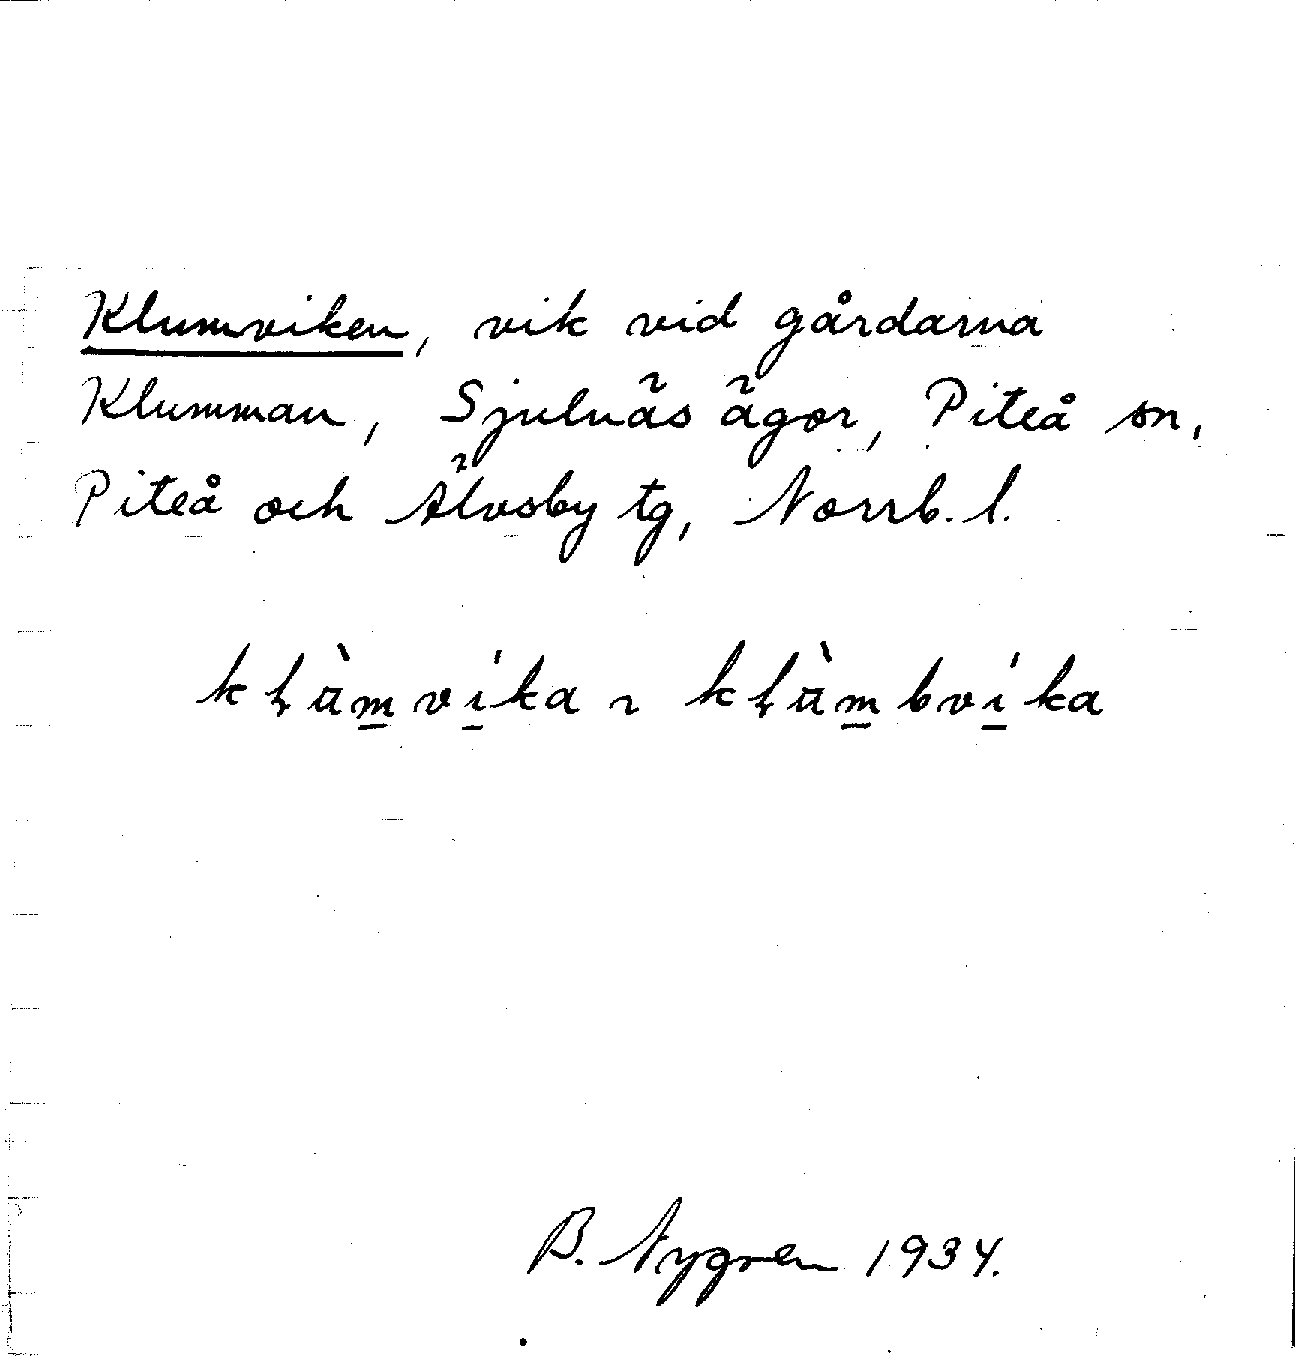 Klumviken, vik vid gårdarna
Klumman, Sjulnäs ägor, Piteå sn,
Piteå och Älvsby tg, Norrb. l.
kḷùm̲ví̲ka ~ kḷùm̲bví̲ka
B. Nygren 1934.